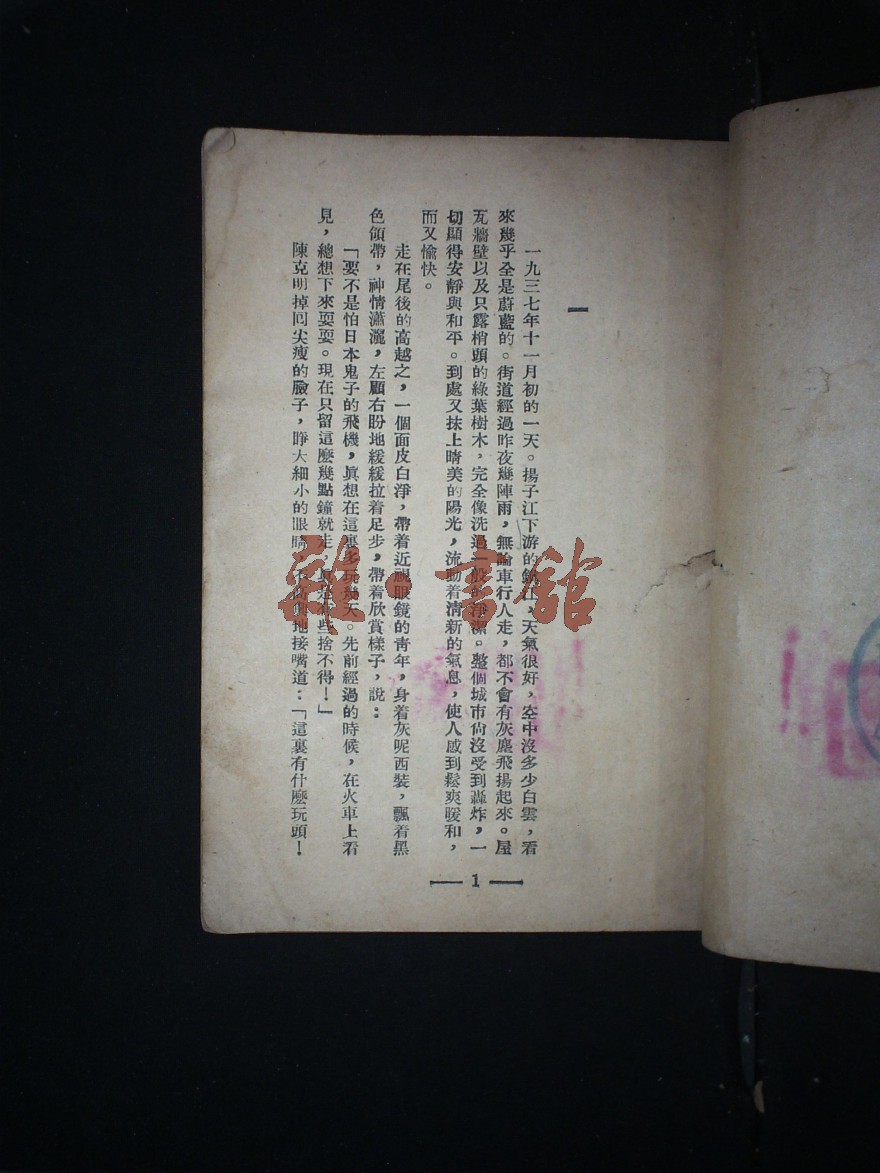 一
一九三七年十一月初的一天。揚子江下游的鎮江,天氣很好,空中沒多少白雲,看
來幾乎全是蔚藍的。街道經過昨夜幾陣雨,無論車行人走,都不會有灰塵飛揚起來。屋
瓦牆壁以及只露梢頭的綠葉樹木,完全像洗過一般的淨潔。整個城市尙沒受到轟炸,一
切顯得安靜與和平。到處又抹上晴美的陽光,流動着清新的氣息,使人感到鬆爽暖和,
而又愉快。
走在尾後的高越之,一個面皮白淨,帶着近視眼鏡的青年,身着灰呢西裝,飄着黑
色領帶,神情瀟灑,左顧右盼地緩緩拉着足步,帶着欣賞樣子,說:
「要不是怕日本鬼子的飛機,眞想在這裏多玩幾天。先前經過的時候,在火車上看
見,總想下來耍耍。現在只留這麼幾點鐘就走,眞是有些捨不得!」
陳克明掉囘尖瘦的臉子,睜大細小的眼睛,不高興地接嘴道:「這裏有什麼玩頭!
1
雜·書館